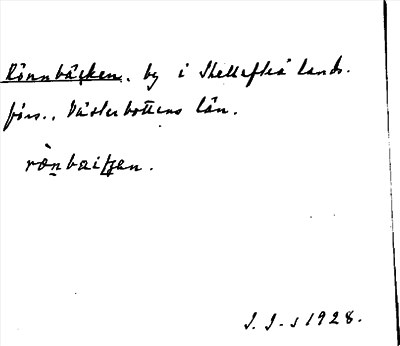 Rönnbäcken. by i Skellefteå lands-
förs., Västerbottens län.
rö̀nbæitʃan.
J. J-s 1928.